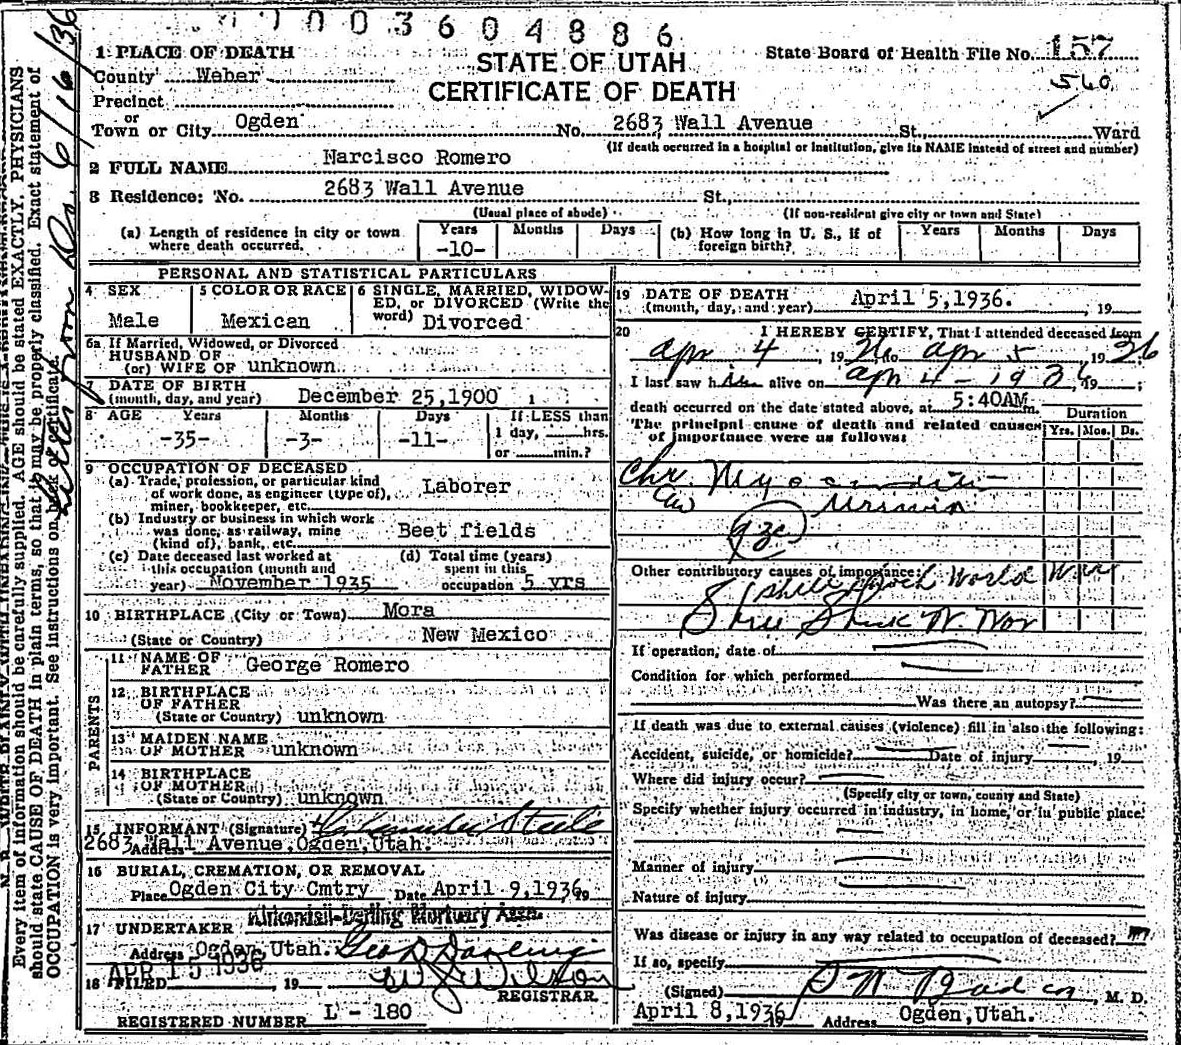 3604886
STATE OF UTAH
CERTIFICATE OF DEATH
State Board of Health File No. 157
560
1 PLACE OF DEATH
County Weber
Precinct
or
Town or City Ogden No. 2683 Wall Avenue St., Ward
(If death occurred in a hospital or institution, give its NAME instead of street and number)
2 FULL NAME Narcisco Romero
3 Residence: No. 2683 Wall Avenue St.,
(Usual place of abode) (If non-resident give city or town and State)
(a) Length of residence in city or town where death occurred. Years -10- Months Days (b) How long in U. S., if of foreign birth? Years Months Days
PERSONAL AND STATISTICAL PARTICULARS
4 SEX Male
5 COLOR OR RACE Mexican
6 SINGLE, MARRIED, WIDOWED, or DIVORCED (Write the word) Divorced
6a If Married, Widowed, or Divorced
HUSBAND OF
(or) WIFE OF unknown
7 DATE OF BIRTH
(month, day, and year) December 25,1900
8 AGE Years -35- Months -3- Days -11- If LESS than 1 day, hrs. or min.?
9 OCCUPATION OF DECEASED
(a) Trade, profession, or particular kind
of work done, as engineer (type of),
miner, bookkeeper, etc. Laborer
(b) Industry or business in which work
was done, as railway, mine
(kind of), bank, etc. Beet fields
(c) Date deceased last worked at
this occupation (month and
year) November 1935
(d) Total time (years)
spent in this
occupation 5 yrs
10 BIRTHPLACE (City or Town) Mora
(State or Country) New Mexico
PARENTS
11 NAME OF
FATHER George Romero
12 BIRTHPLACE
OF FATHER
(State or Country) unknown
13 MAIDEN NAME
OF MOTHER unknown
14 BIRTHPLACE
OF MOTHER
(State or Country) unknown
15 INFORMANT (Signature) Steele
Address 2683 Wall Avenue, Ogden, Utah.
16 BURIAL, CREMATION, OR REMOVAL
Place Ogden City Cmtry Date April 9,1936 19
Kirkendall-Darling Mortuary Assn.
17 UNDERTAKER
Address Ogden Utah. Geo Darling
18 FILED APR 15 1936, 19 Wilson
REGISTRAR.
REGISTERED NUMBER L - 180
19 DATE OF DEATH
(month, day, and year) April 5,1936. , 19
20 I HEREBY CERTIFY, That I attended deceased from
apr 4, 1936 to apr 5, 1936
I last saw him alive on apr 4 - 1936, 19 ;
death occurred on the date stated above, at 5:40AM m.
The principal cause of death and related causes
of importance were as follows:
Duration
Yrs. Mos. Ds.
Chr. Myocarditis
Uremia
Other contributory causes of importance:
Shell Shock World War
Shell Shock W War
If operation, date of
Condition for which performed
Was there an autopsy?
If death was due to external causes (violence) fill in also the following:
Accident, suicide, or homicide? Date of injury , 19
Where did injury occur?
(Specify city or town, county and State)
Specify whether injury occurred in industry, in home, or in public place.
Manner of injury
Nature of injury
Was disease or injury in any way related to occupation of deceased?
If so, specify
(Signed) , M. D.
April 8,1936 19 Address Ogden,Utah.
Every item of information should be carefully supplied. AGE should be stated EXACTLY. PHYSICIANS
should state CAUSE OF DEATH in plain terms, so that it may be properly classified. Exact statement of
OCCUPATION is very important. See instructions on back of certificate.
Letter from Dr. 6/16/36